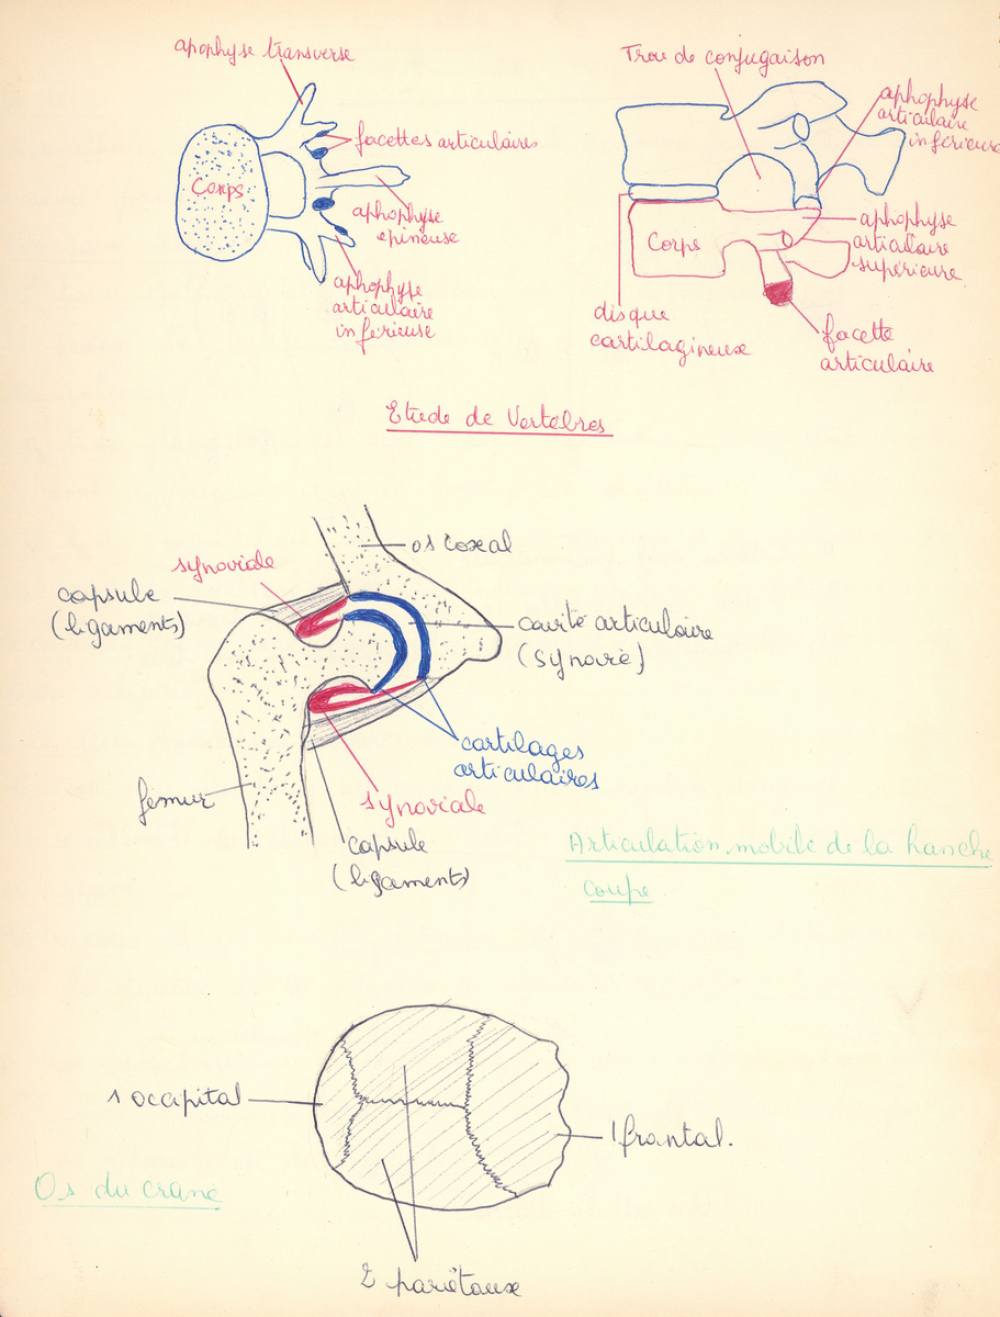 apophyse transverse
Corps
facettes articulaires
aphophyse
epineuse
aphophyse
articulaire
inférieuse
Trou de conjugaison
aphophyse
articulaire
inférieure
Corps
aphophyse
articulaire
supérieure
disque
cartilagineuse
facette
articulaire
Etude de Vertèbres
synoviale
os coxal
capsule
(ligaments)
cavité articulaire
(synovie)
cartilages
articulaires
fémur
synoviale
capsule
(ligaments)
Articulation mobile de la hanche
coupe
1 occipital
1 frontal.
Os du crane
2 pariétaux